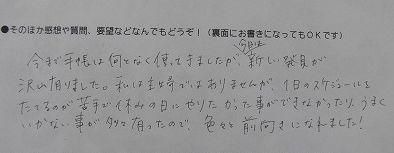 ●そのほか感想や質問、要望などなんでもどうぞ！（裏面にお書きになってもOKです）
今まで手帳は何となく使ってきましたが、今日は新しい発見が
沢山有りました。私は主婦ではありませんが、1日のスケジュールを
たてるのが苦手で休みの日にやりたかった事ができなかったり、うまく
いかない事が多々有ったので、色々と前向きになれました！